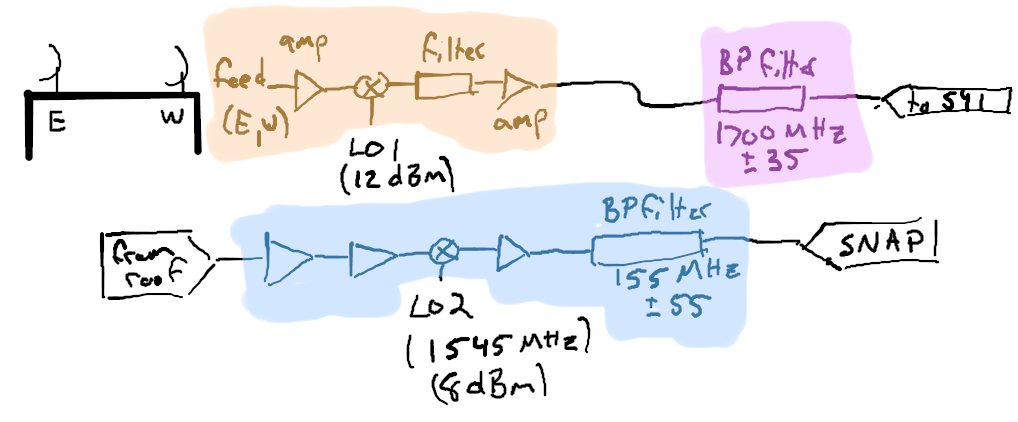 E
W
feed
(E,W)
amp
LO1
(12 dBm)
filter
amp
BP filter
1700 MHz
± 35
to 541
from
roof
LO2
(1545 MHz)
(8 dBm)
BP filter
155 MHz
± 55
SNAP